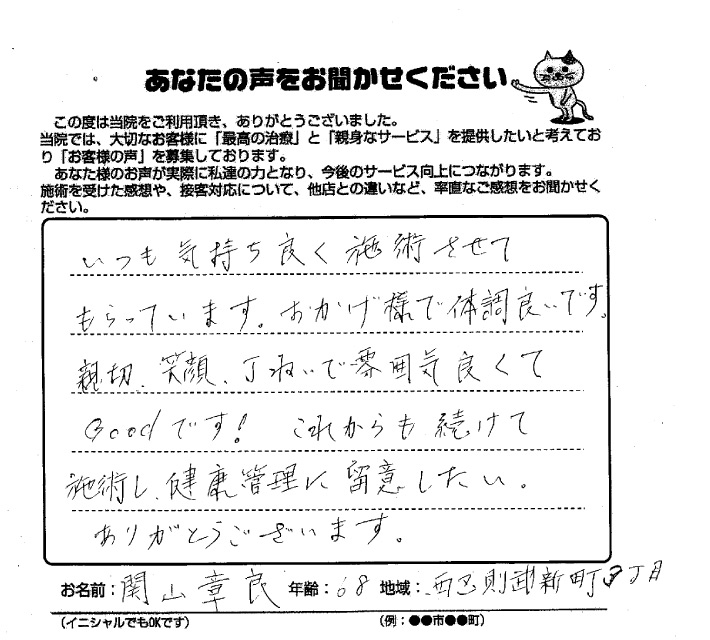 あなたの声をお聞かせください
この度は当院をご利用頂き、ありがとうございました。
当院では、大切なお客様に「最高の治療」と「親身なサービス」を提供したいと考えてお
り「お客様の声」を募集しております。
あなた様のお声が実際に私達の力となり、今後のサービス向上につながります。
施術を受けた感想や、接客対応について、他店との違いなど、率直なご感想をお聞かせく
ださい。
いつも気持ち良く施術させて
もらっています。おかげ様で体調良いです。
親切、笑顔、丁ねいで雰囲気良くて
Goodです! これからも続けて
施術し、健康管理に留意したい。
ありがとうございます。
お名前:関山章良 年齢:68 地域:西区則武新町3丁目
(イニシャルでもOKです) (例:●●市●●町)